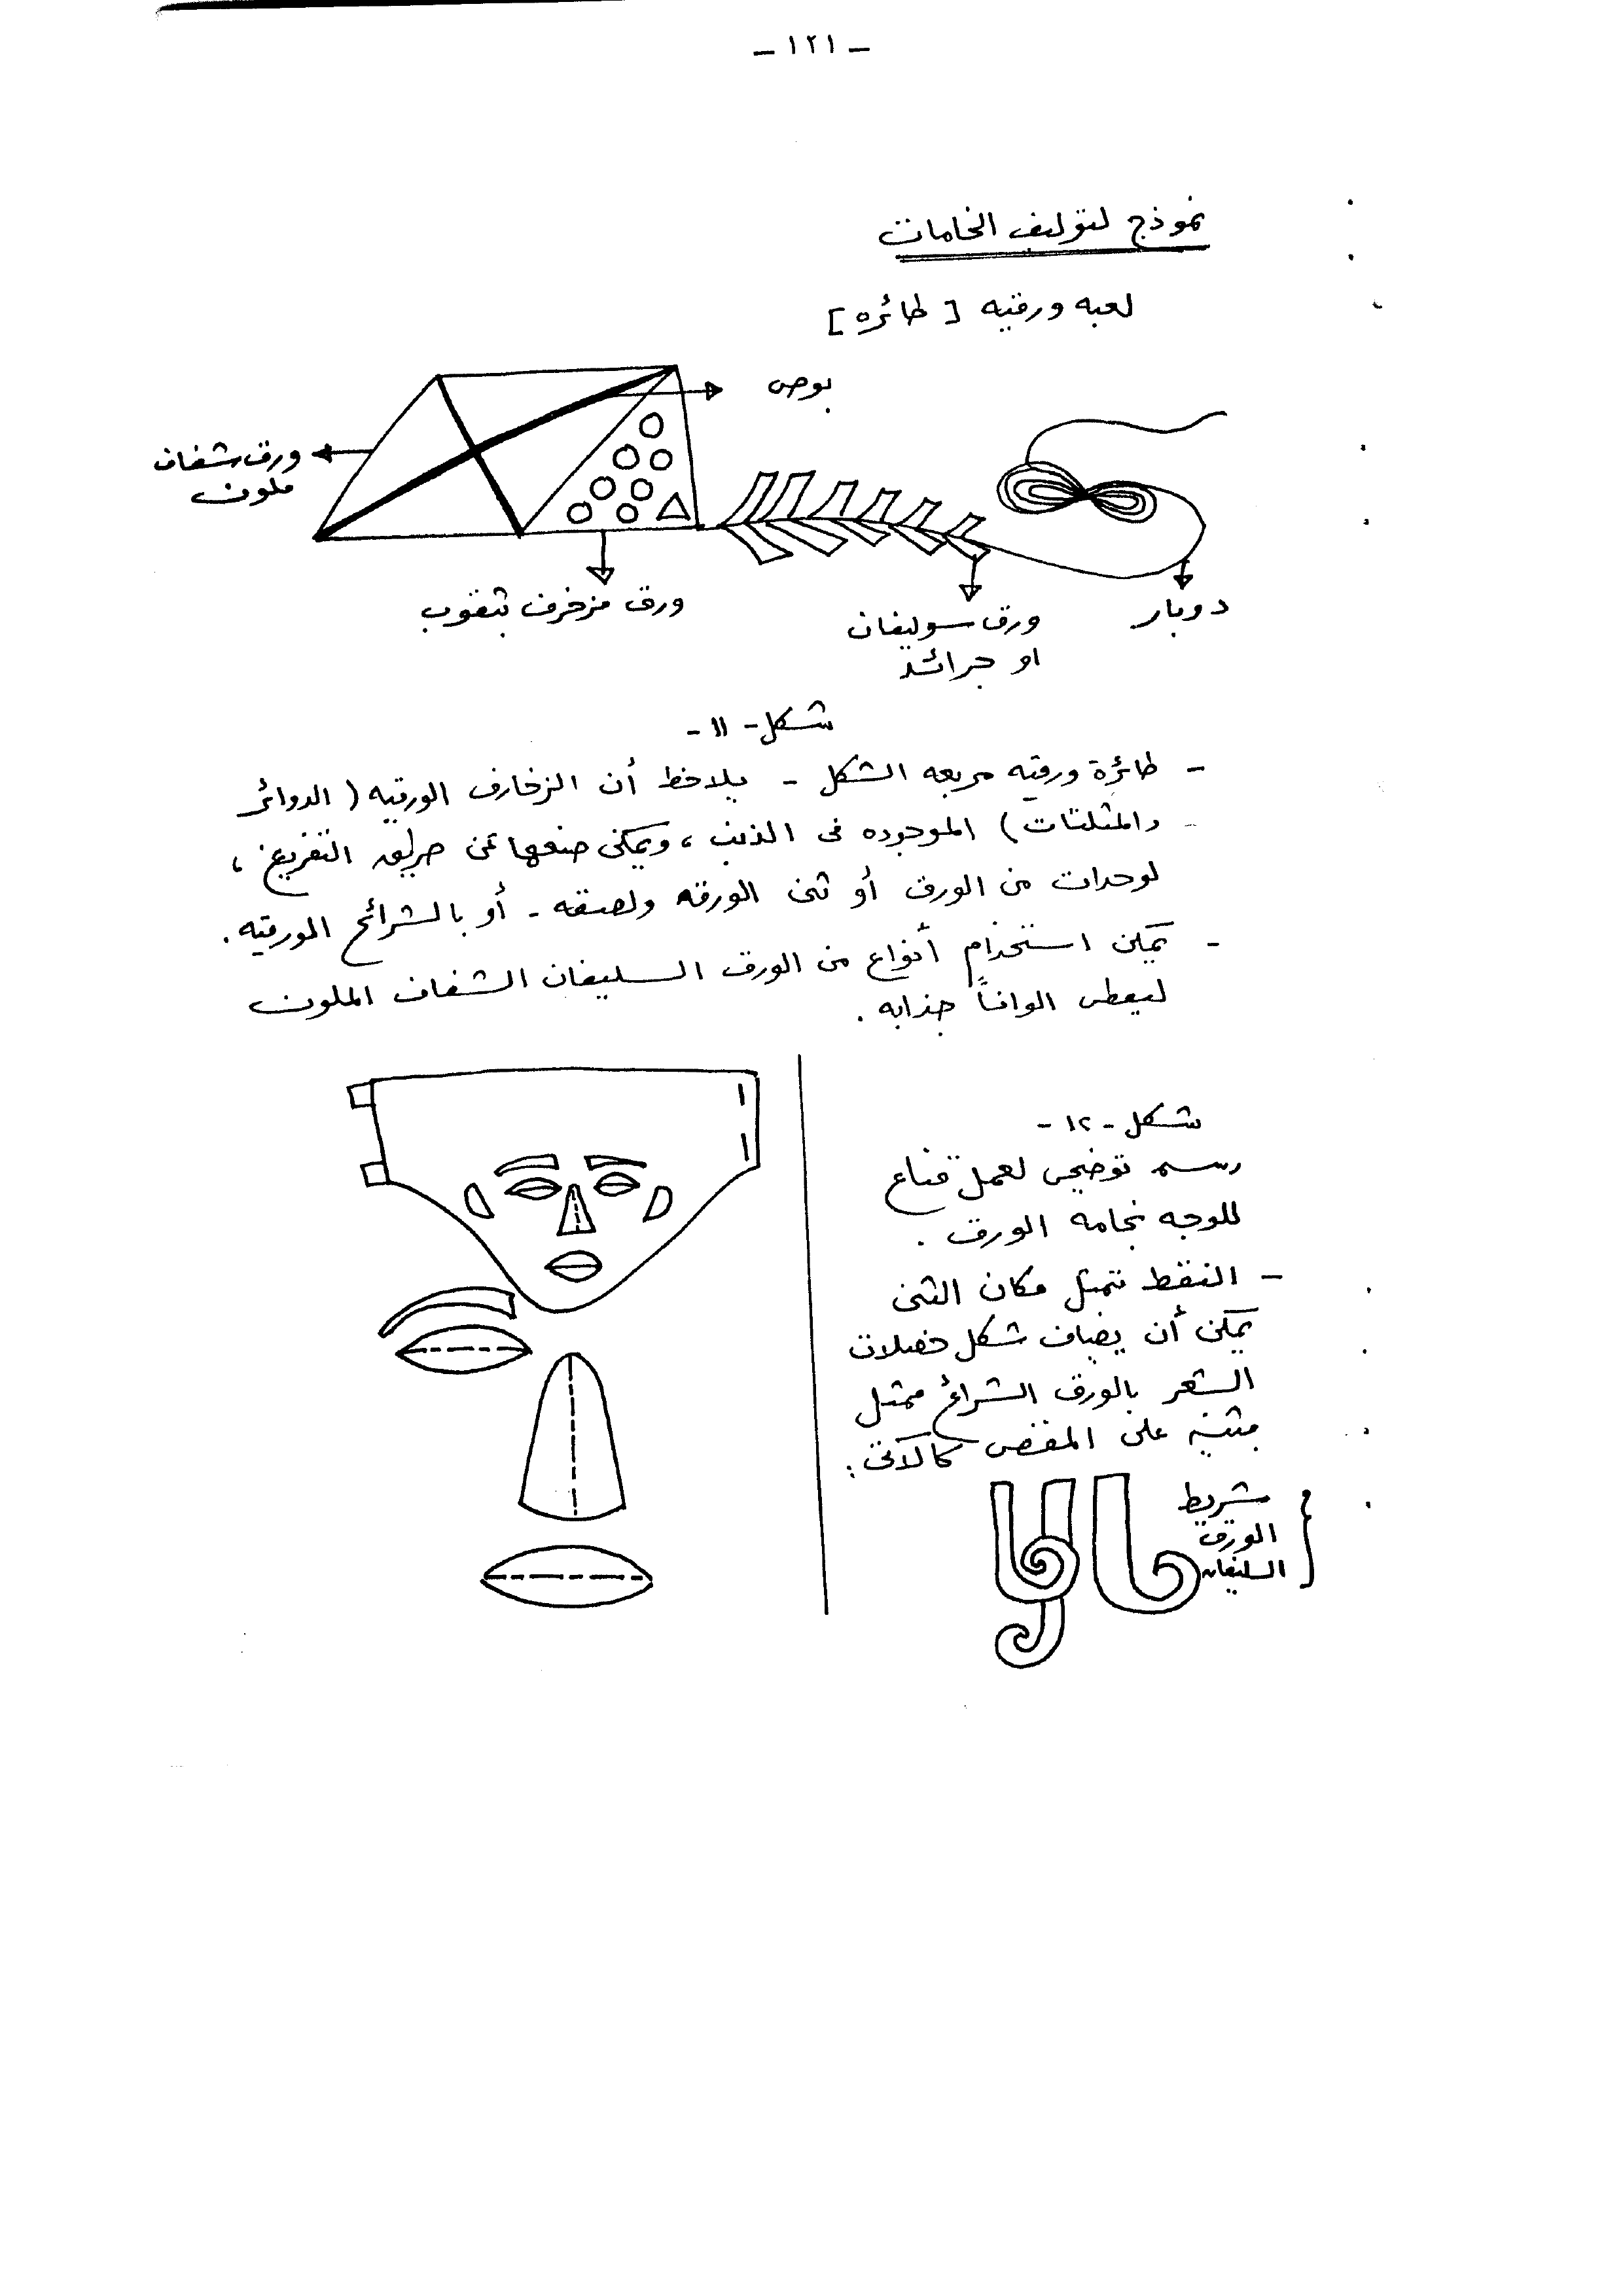 - ١٢١ -
نموذج لتوليف الخامات
لعبه ورقيه [ طائره ]
بوص
ورق شفاف
ملون
ورق مزخرف بثقوب
ورق سوليفان
او جرائد
دوبار
شكل - ١١ -
- طائرة ورقيه مربعه الشكل - يلاحظ أن الزخارف الورقيه ( الدوائر
والمثلثات ) الموجوده فى الذنب ، ويمكن صنعها عن طريق التفريغ ،
لوحدات من الورق أو ثنى الورقه ولصقه - أو بالشرائح الورقيه .
- يمكن استخدام أنواع من الورق السليفان الشفاف الملون
ليعطى الواناً جذابه .
شكل - ١٢ -
رسم توضيحى لعمل قناع
للوجه بخامه الورق .
- النقط تمثل مكان الثنى
يمكن أن يضاف شكل خصلات
الشعر بالورق الشرائح
على المقص كالآتى :
شريط
الورق
السليفان